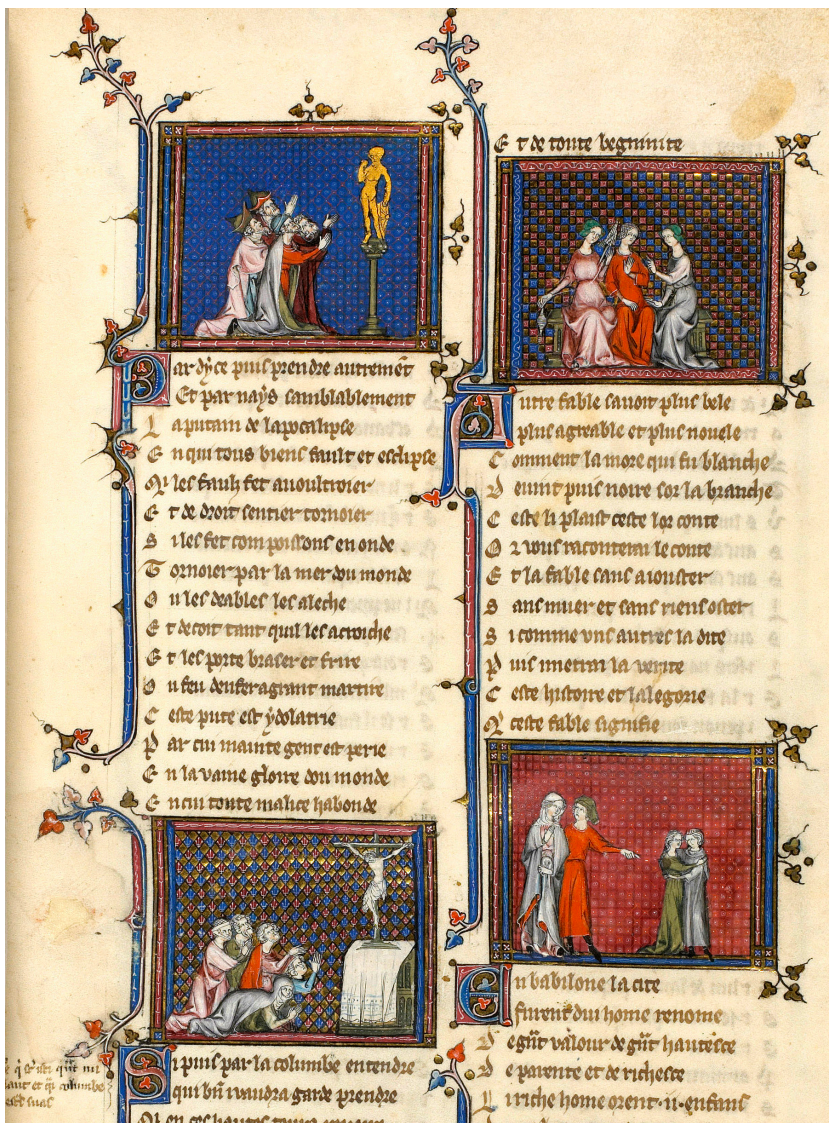 Par dyce puis prendre autremēt
Et par nays samblablement
La putain de lapocalipse
En qui tous biens fault et esclipse
Qui les fauls fet auoultroier
Et de droit sentier tornoier
Si les fet com poissons en onde
Tornoier par la mer dou monde
Ou les deables les aleche
Et decoit tant quil les acroiche
Et les porte braser et frire
Ou feu denfer a grant martire
Ceste pute est ydolatrie
Par cui mainte gent est perie
En la vaine gloire dou monde
En cui toute malice habonde
Si puis par la columbe entendre
qui bn̄ vaudra garde prendre
Et de toute begninite
Autre fable sauoit plus bele
plus agreable et plus nouele
Comment la more qui fu blanche
Deuint puis noire sor la branche
Ceste li plaist ceste lor conte
Or vous raconterai le conte
Et la fable sans aiouster
Sans muer et sans riens oster
Si comme vns autres la dite
Puis i metrai la verite
Ceste histoire et lalegorie
Que ceste fable signifie
En babilone la cite
furent dui home renome
De grāt valour de grāt hautesce
De parente et de richesce
Li riche home orent .ii. enfans